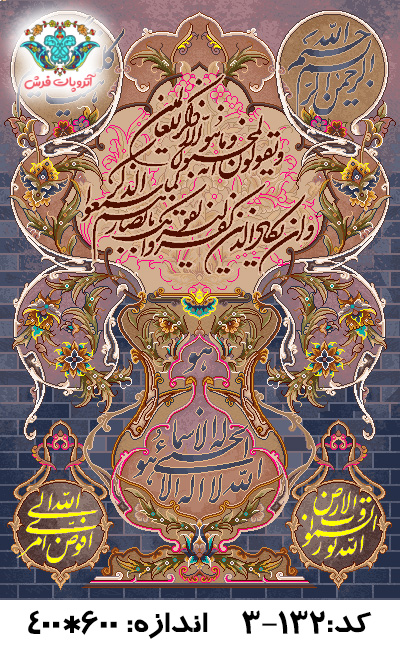 آترویات فرش
بسم الله
الرحمن الرحیم
وان یکاد الذین کفروا لیزلقونک بابصارهم
لما سمعوا الذکر
ویقولون انه لمجنون
وما هو الا ذکر للعالمین
هو
الله لا اله الا هو
له الاسماء الحسنی
افوض امری
الی الله
الله نور السموات
والارض
کد:۱۳۲-۳
اندازه: ۶۰۰*۴۰۰